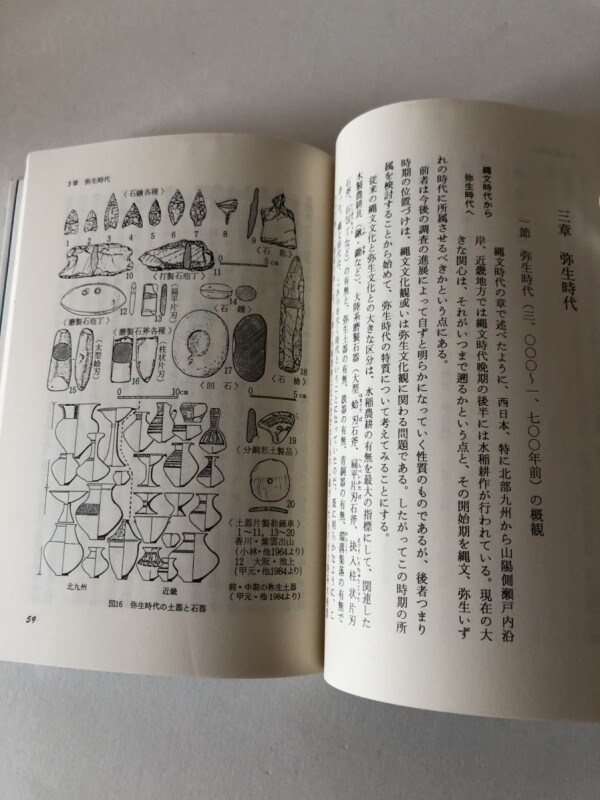 三章　弥生時代
一節　弥生時代(三、〇〇〇〜一、七〇〇年前)の概観
縄文時代から
弥生時代へ
縄文時代の章で述べたように、西日本、特に北部九州から山陽側瀬戸内沿
岸、近畿地方では縄文時代晩期の後半には水稲耕作が行われている。現在の大
きな関心は、それがいつまで遡るかという点と、その開始期を縄文、弥生いず
れの時代に所属させるべきかという点にある。
前者は今後の調査の進展によって自ずと明らかになっていく性質のものであるが、後者つまり
時期の位置づけは、縄文文化観或いは弥生文化観に関わる問題である。したがってこの時期の所
属を検討することから始めて、弥生時代の特質について考えてみることにする。
従来の縄文文化と弥生文化との大きな区分は、水稲農耕の有無を最大の指標にして、関連した
木製農耕具(鍬、鋤など)、大陸系磨製石器(大型蛤刃石斧、扁平片刃石斧、抉入柱状片刃
石斧、石庖丁など)の有無と、弥生土器の有無、鉄器の有無、青銅器の有無、環濠集落の有無で
3章　弥生時代
(石鏃各種)
1 2 3 4 5 6 7 8 9
(石匙)
10 11
(打製石庖丁)
0 5cm
12 13 14
(扁平片刃)
(石錘)
(磨製石庖丁)
(磨製石斧各種)
(太型蛤刃)
(柱状片刃)
15 16 17 18
(凹石)
(石槍)
0 10cm
0 5cm
19
(分銅形土製品)
20
(土器片製紡錘車)
1〜11, 13〜20
香川・紫雲出山
(小林・他1964より)
12　大阪・池上
(甲元・他1984より)
前・中期の弥生土器
(甲元・他1984より)
北九州　近畿
図16　弥生時代の土器と石器
59